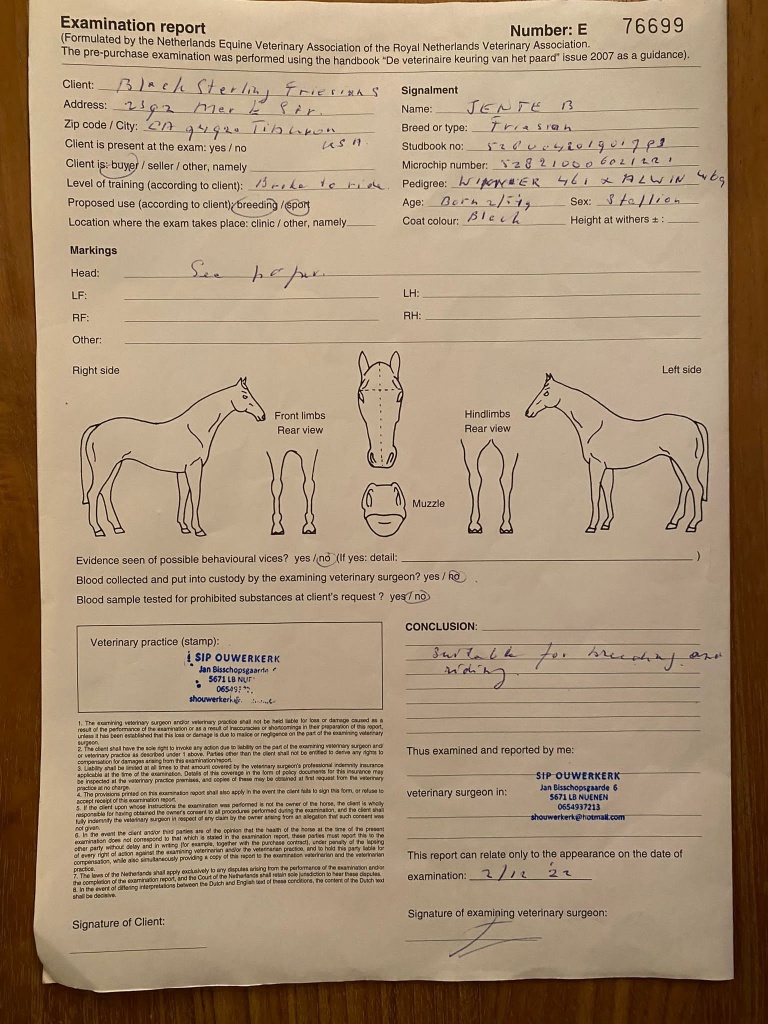 Examination report
Number: E 76699
(Formulated by the Netherlands Equine Veterinary Association of the Royal Netherlands Veterinary Association.
The pre-purchase examination was performed using the handbook "De veterinaire keuring van het paard" issue 2007 as a guidance).
Client: Black Sterling Friesians
Address:
Zip code / City: CA Tiburon
USA
Client is present at the exam: yes / no
Client is: buyer / seller / other, namely
Level of training (according to client): Broke to ride
Proposed use (according to client): breeding / sport
Location where the exam takes place: clinic / other, namely
Signalment
Name: JENTE B
Breed or type: Friesian
Studbook no:
Microchip number:
Pedigree: 461 x ALWIN 469
Age: Born Sex: Stallion
Coat colour: Black Height at withers ± :
Markings
Head: See paper.
LF: LH:
RF: RH:
Other:
Right side
Left side
Front limbs
Rear view
Hindlimbs
Rear view
Muzzle
Evidence seen of possible behavioural vices? yes / no (If yes: detail: )
Blood collected and put into custody by the examining veterinary surgeon? yes / no
Blood sample tested for prohibited substances at client's request ? yes / no
Veterinary practice (stamp):
SIP OUWERKERK
Jan Bisschopsgaarde
5671 LB
CONCLUSION:
Suitable for breeding and
riding.
1. The examining veterinary surgeon and/or veterinary practice shall not be held liable for loss or damage caused as a
result of the performance of the examination or as a result of inaccuracies or shortcomings in their preparation of this report,
unless it has been established that this loss or damage is due to malice or negligence on the part of the examining veterinary
surgeon.
2. The client shall have the sole right to invoke any action due to liability on the part of the examining veterinary surgeon and/
or veterinary practice as described under 1 above. Parties other than the client shall not be entitled to derive any rights to
compensation for damages arising from this examination/report.
3. Liability shall be limited at all times to that amount covered by the veterinary surgeon's professional indemnity insurance
applicable at the time of the examination. Details of this coverage in the form of policy documents for this insurance may
be inspected at the veterinary practice premises, and copies of these may be obtained at first request from the veterinary
practice at no charge.
4. The provisions printed on this examination report shall also apply in the event the client fails to sign this form, or refuse to
accept receipt of this examination report.
5. If the client upon whose instructions the examination was performed is not the owner of the horse, the client is wholly
responsible for having obtained the owner's consent to all procedures performed during the examination, and the client shall
fully indemnify the veterinary surgeon in respect of any claim by the owner arising from an allegation that such consent was
not given.
6. In the event the client and/or third parties are of the opinion that the health of the horse at the time of the present
examination does not correspond to that which is stated in the examination report, these parties must report this to the
other party without delay and in writing (for example, together with the purchase contract), under penalty of the losing
of every right of action against the examining veterinarian and/or the veterinarian practice, and to hold this party liable for
compensation, while also simultaneously providing a copy of this report to the examination veterinarian and the veterinarian
practice.
7. The laws of the Netherlands shall apply exclusively to any disputes arising from the performance of the examination and/or
the completion of the examination report, and the Court of the Netherlands shall retain sole jurisdiction to hear these disputes.
8. In the event of differing interpretations between the Dutch and English text of these conditions, the content of the Dutch text
shall be decisive.
Thus examined and reported by me:
veterinary surgeon in:
SIP OUWERKERK
Jan Bisschopsgaarde 6
5671 LB NUENEN
0654937213
shouwerkerk@hotmail.com
This report can relate only to the appearance on the date of
examination: 2/12 '22
Signature of Client:
Signature of examining veterinary surgeon: